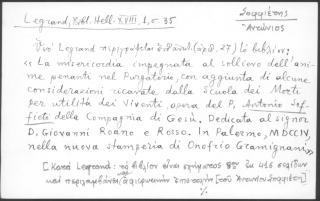 Legrand, Bibl. Hell. XVIII, 1, σ. 35
Σοφφιέτης
Ἀντώνιος
Ὑπὸ Legrand περιγράφεται (ἀρ. 27) τὸ βιβλίον:
« La misericordia impegnata al sollievo dell'ani-
me penanti nel Purgatorio, con aggiunta di alcune
considerazioni ricavate dalla Scuola dei Morti
per utilità dei Viventi opera del P. Antonio Sof-
fieti della Compagnia di Gesù. Dedicata al signor
D. Giovanni Roano e Rosso. In Palermo, MDCCIV,
nella nuova stamperia di Onofrio Gramignani»
[Κατὰ Legrand: τὸ βιβλίον εἶναι σχήματος 8ον ἐκ 416 σελίδων
καὶ περιλαμβάνει ἀφιερωτικὴν ἐπιστολὴν [τοῦ Ἀντωνίου Σοφφιέτη]